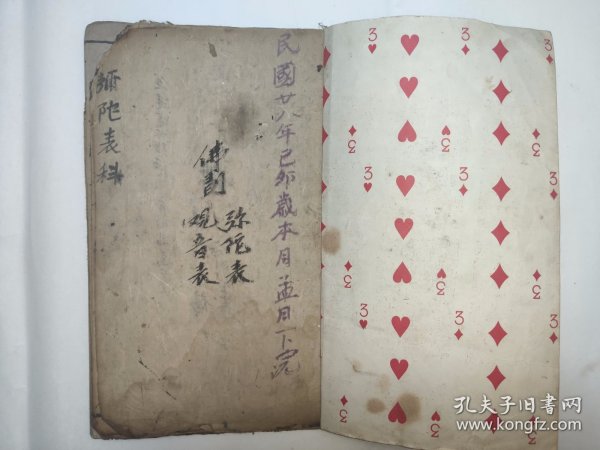 民國廿八年己卯歲本月孟日下浣
佛門
弥陀表
觀音表
彌陀表科
3
3
3
3
3
3
3
3
3
3
3
3
孔夫子旧书网
www.kongfz.com